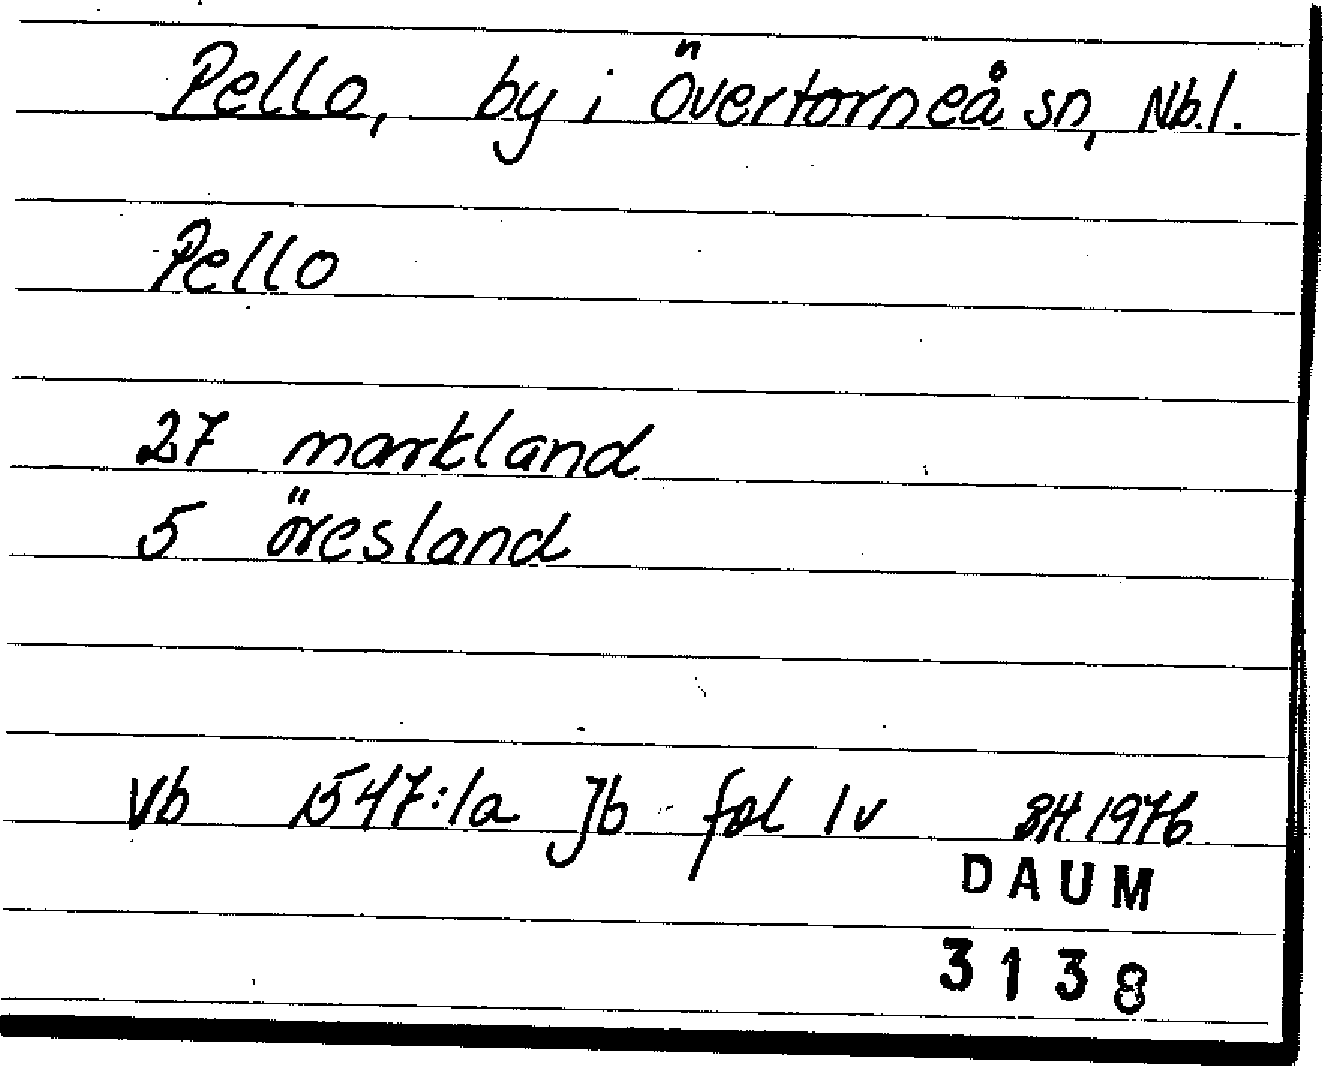 Pello, by i Övertorneå sn, Nb.l.
Pello
27 markland
5 öresland
Vb 1547:1a Jb fol 1v BH 1976
DAUM
3138